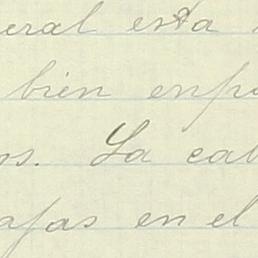 eral esta
bien enfo
os. La cab
afas en el